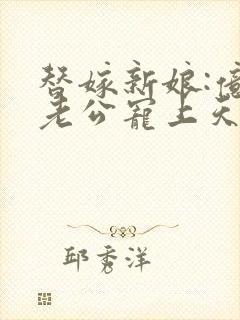 替嫁新娘:億
老公寵上天
邱秀洋